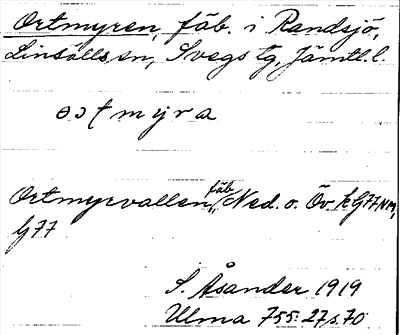 Ortmyren, fäb. i Randsjö,
Linsälls sn, Svegs tg, Jämtl. l.
ɔtmyra
Ortmyrvallen, fäb. Ned. o. Öv. k G77 NM,
G77
S. Åsander 1919
Ulma 755:27 s. 70